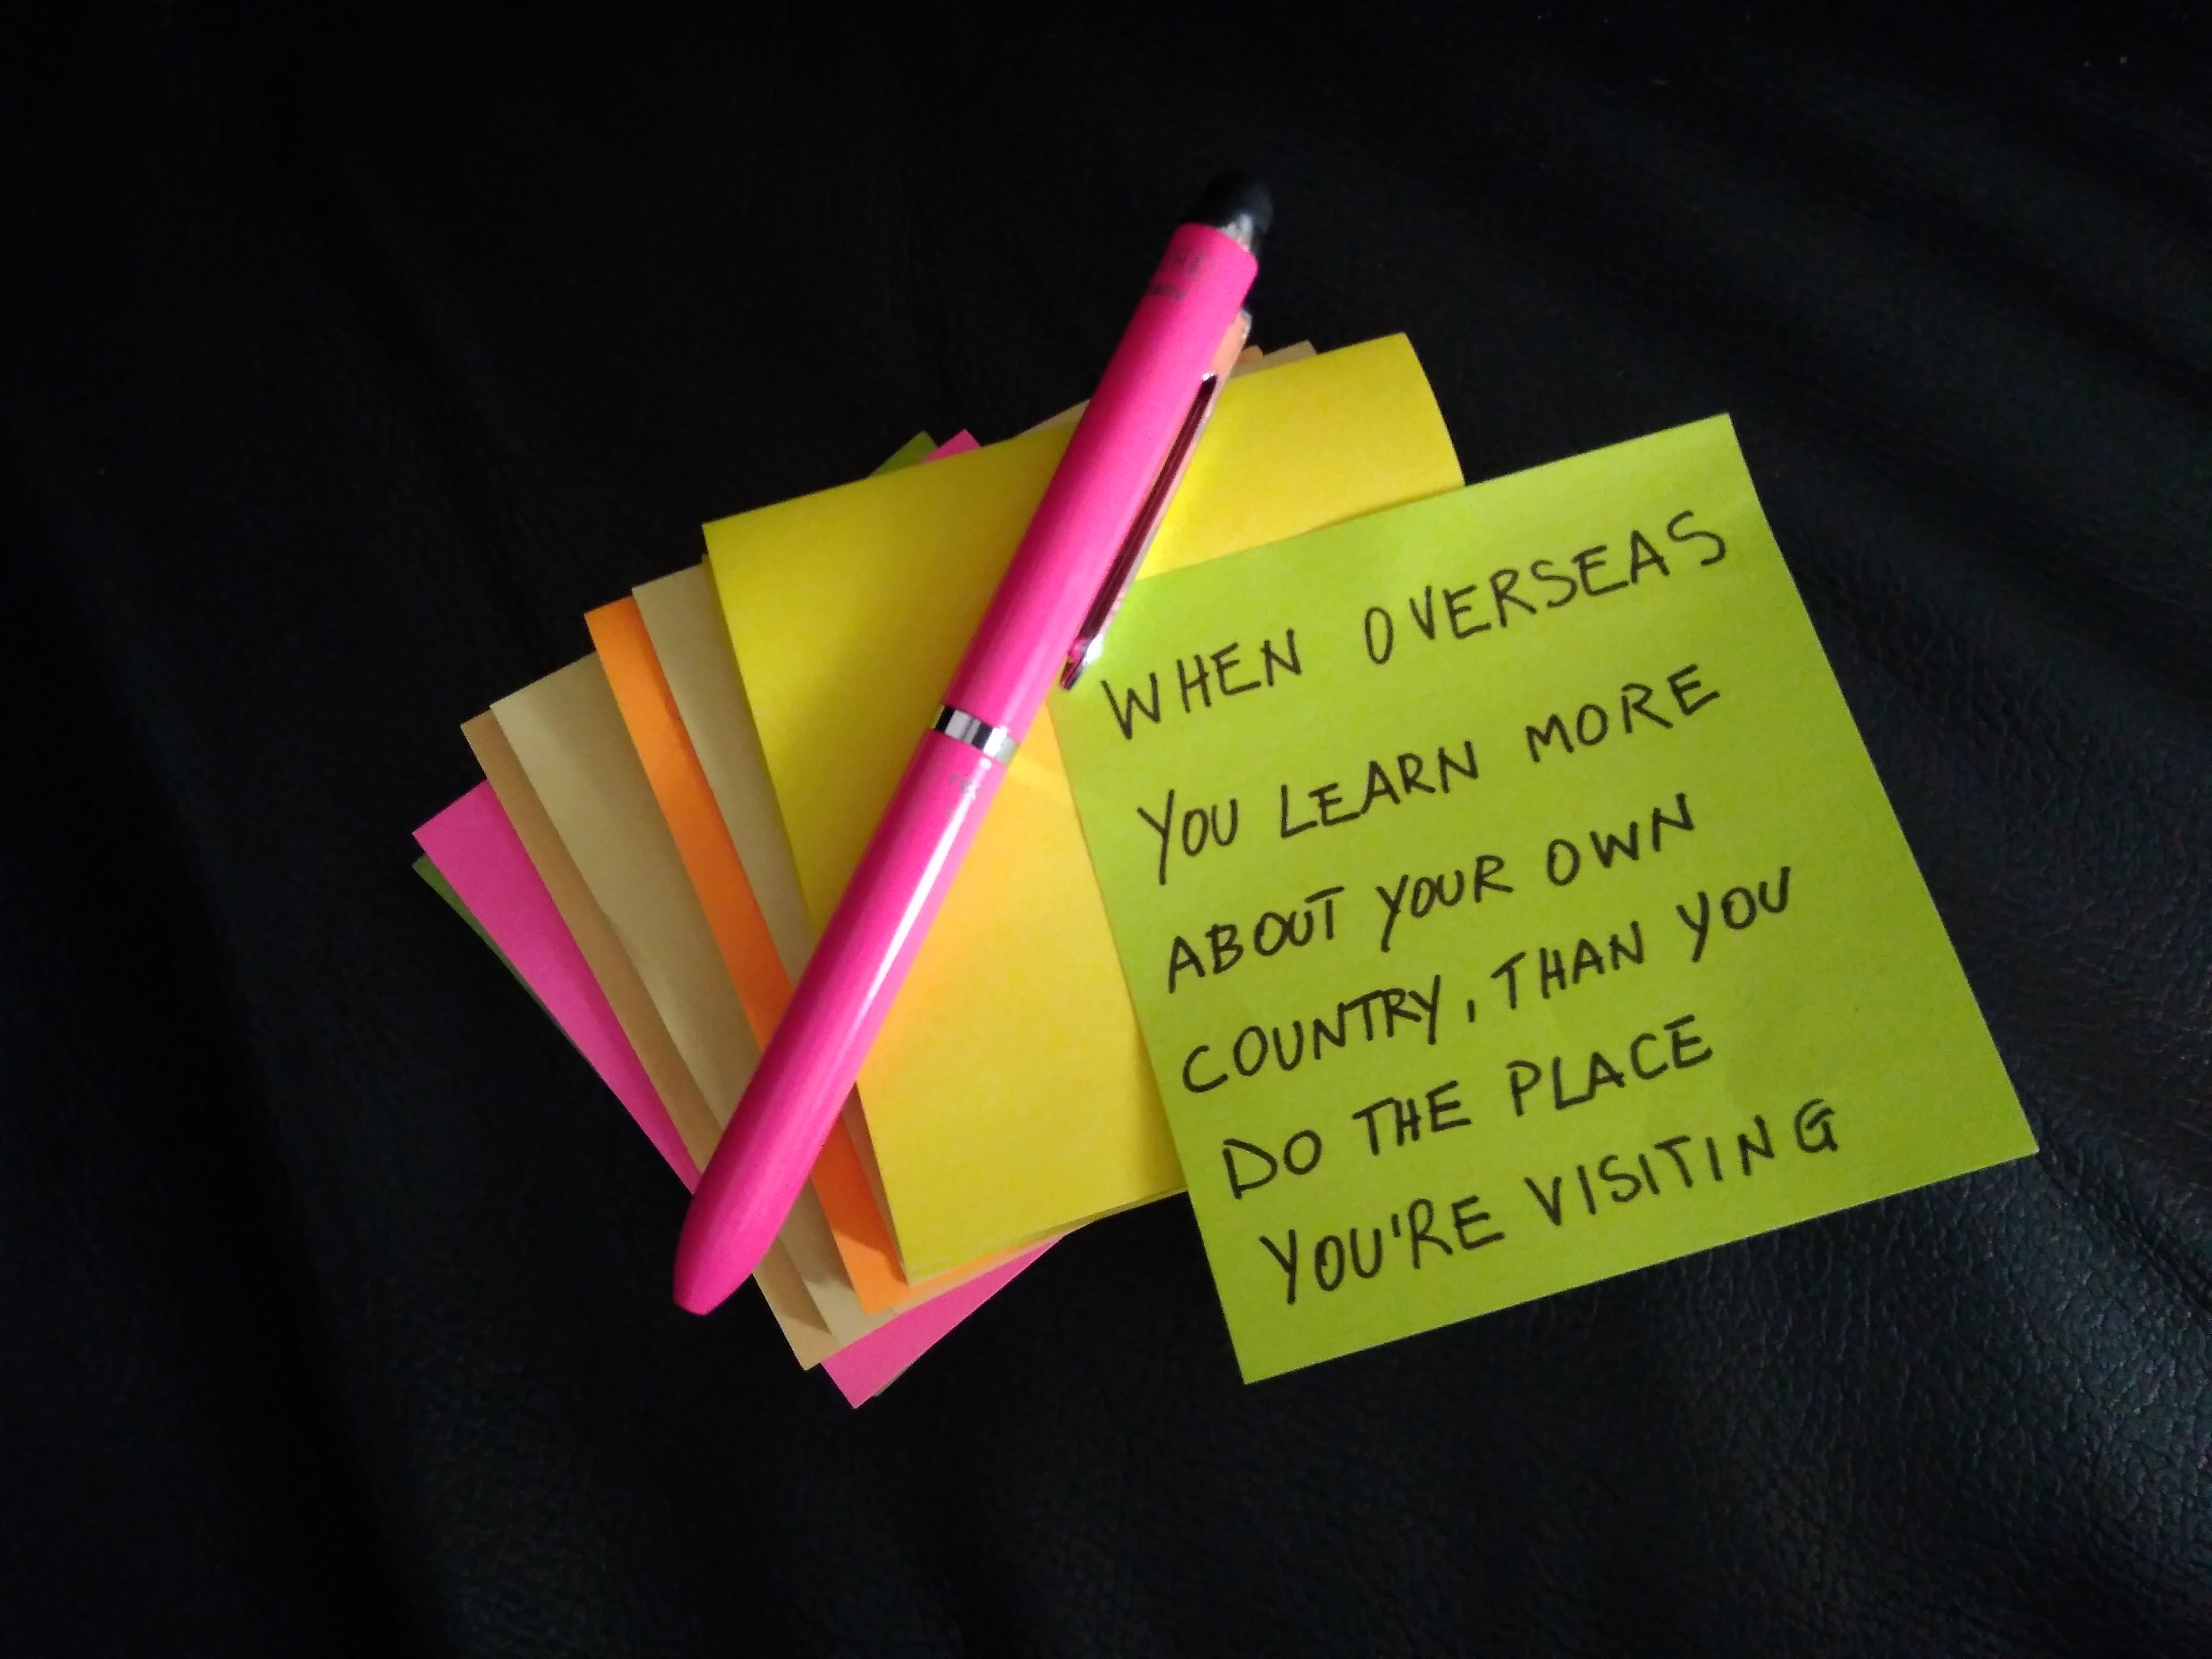 WHEN OVERSEAS
YOU LEARN MORE
ABOUT YOUR OWN
COUNTRY, THAN YOU
DO THE PLACE
YOU'RE VISITING